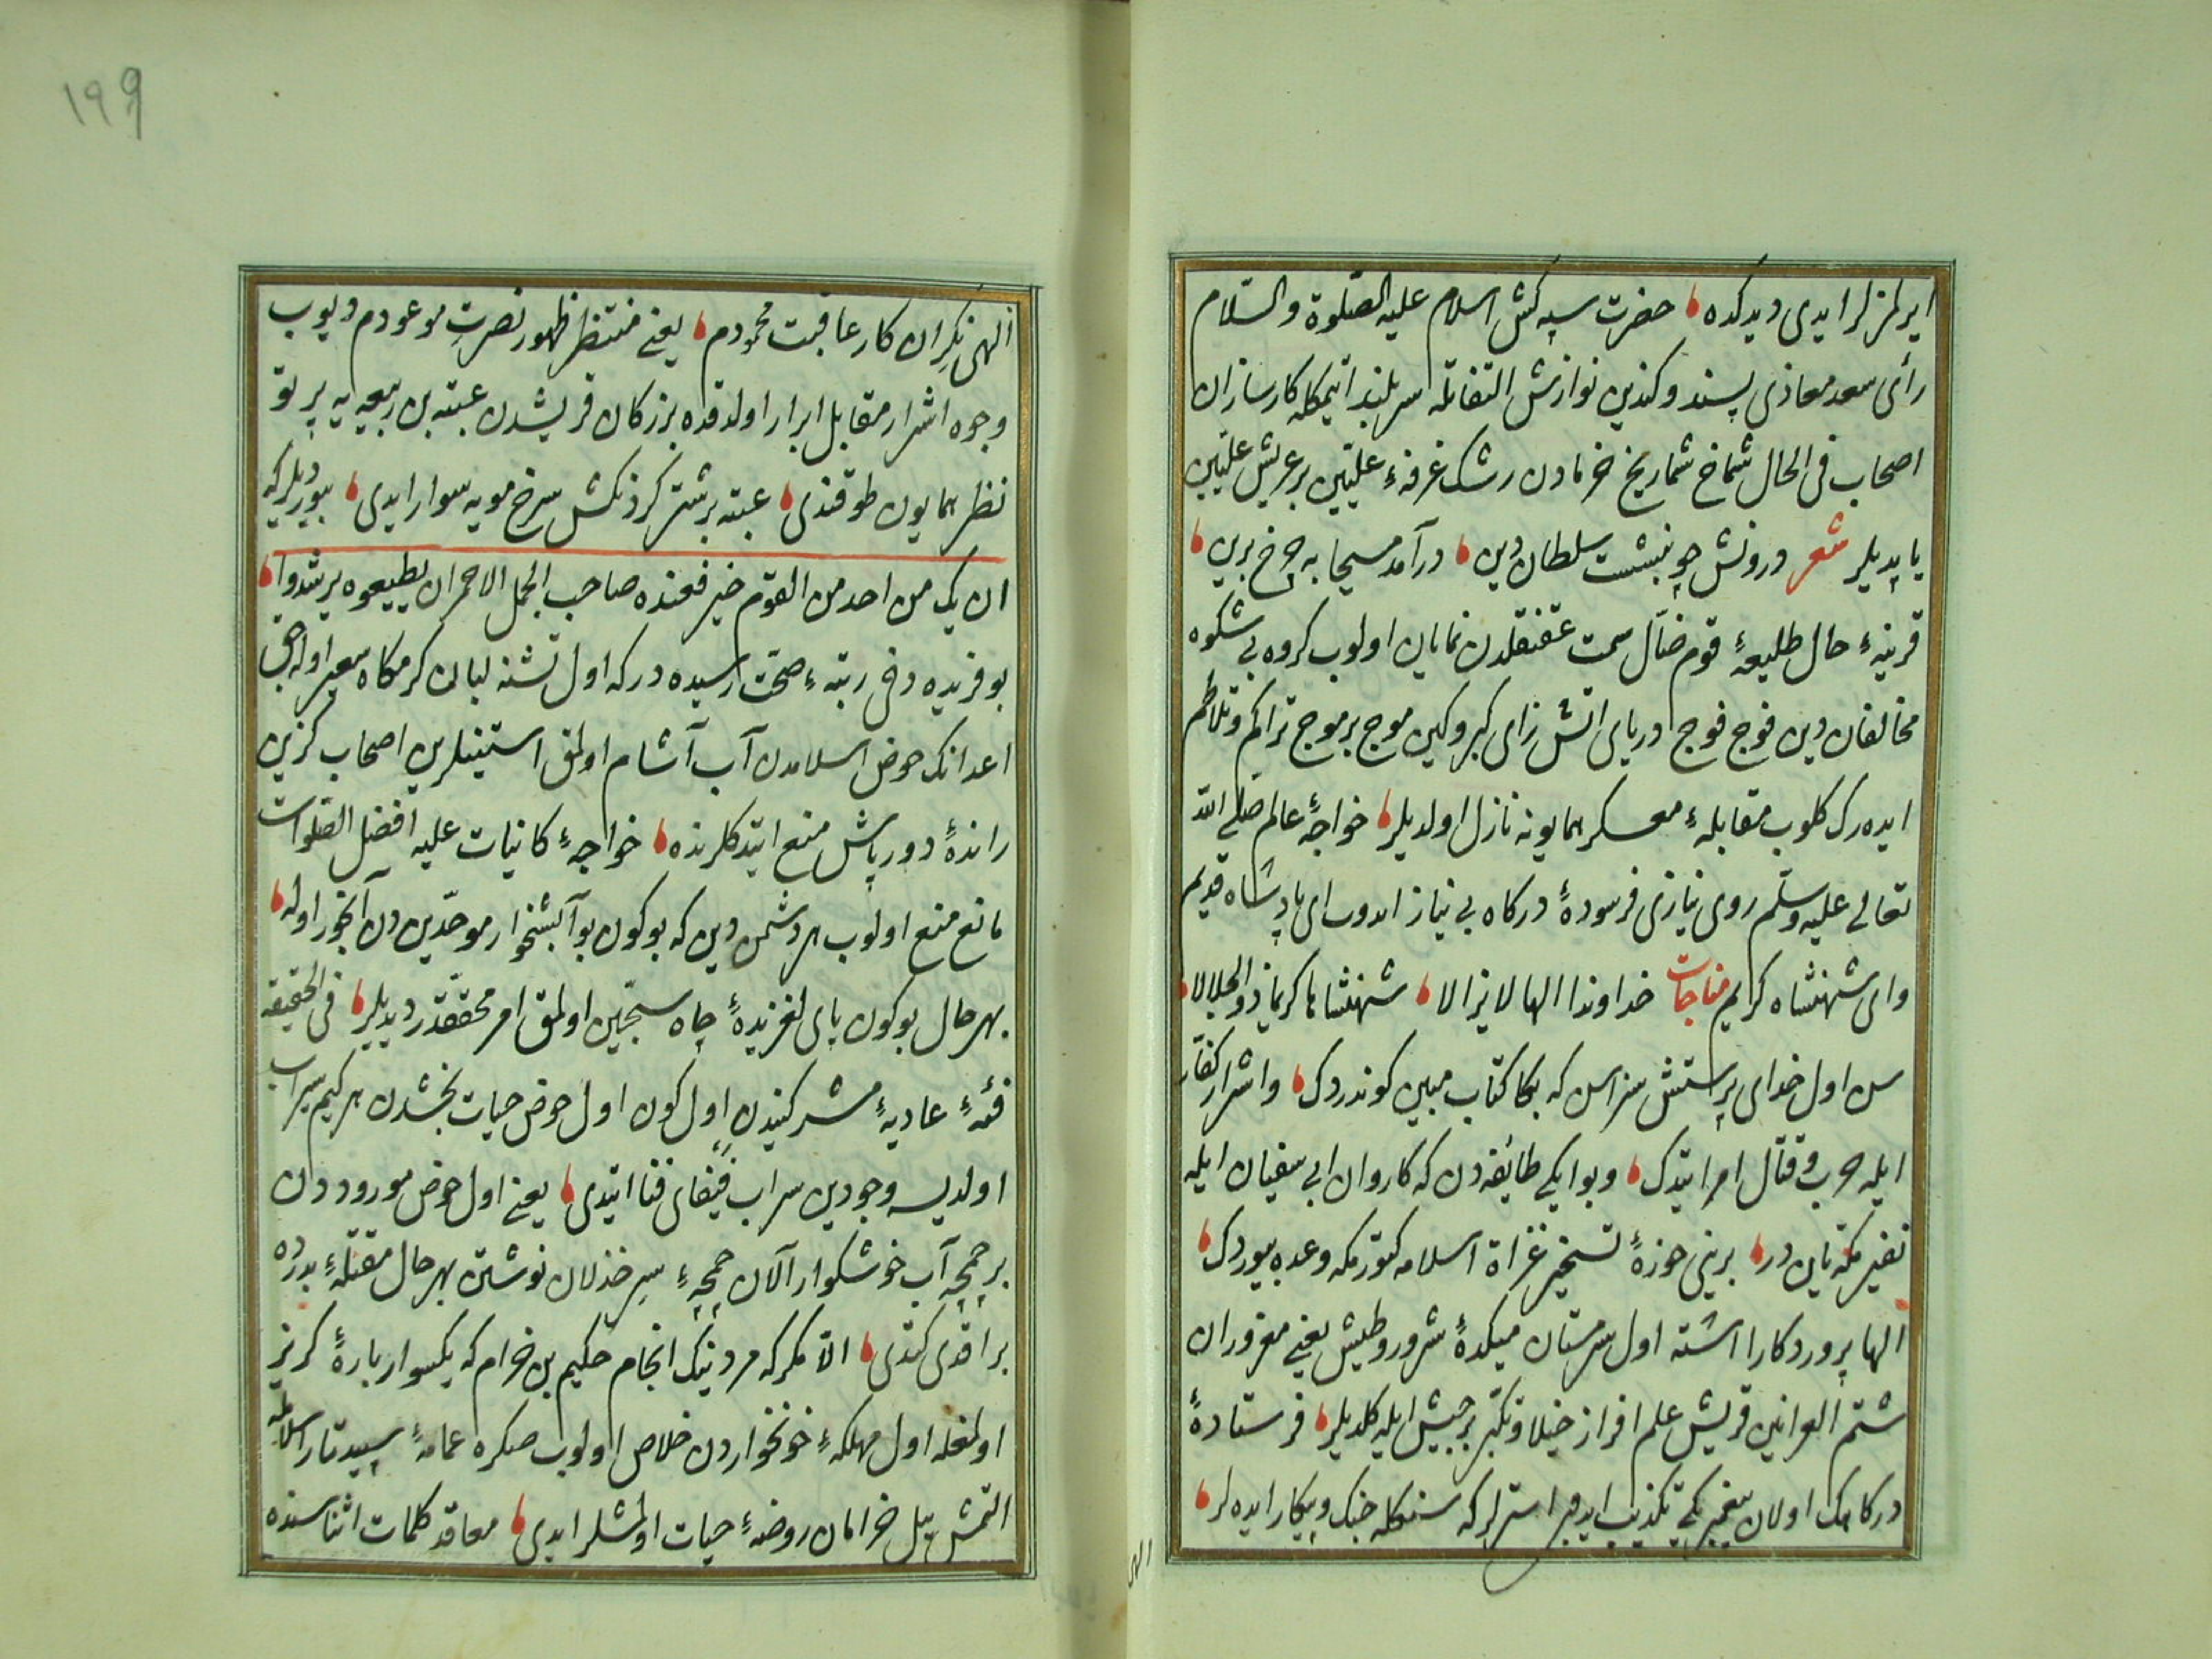 ایرلمزلر ایدی دیدکده حضرت سپه کش اسلام علیه الصلوة والسلام
رأی سعد معاذی پسند و کندین نوازش التفاتله سربلند اتیمکله کارسازان
اصحاب فی الحال شماخ شماریخ خرمادن رشک غرفهٔ علیین بر عریش علیین
یاپدیلر شعر درونش چو بنشست سلطان دین درآمد مسیحا به چرخ برین
قرینهٔ حال طلیعهٔ قوم ضال سمت عقنقلدن نمایان اولوب کروه بی شکوه
مخالفان دین فوج فوج دریای اتش زای کبر و کین موج بر موج تراکم و تلاطم
ایده رک کلوب مقابلهٔ معسکر همایونه نازل اولدیلر خواجهٔ عالم صلی الله
تعالی علیه وسلم روی نیازی فرسودهٔ درکاه بی نیاز ایدوب ای پادشاه قدیم
وای شهنشاه کرایم مناجات خداوندا الها لایزالا شهنشاها کریما ذوالجلالا
سن اول خدای پرستش سزاسن که بکا کتاب مبین کوندردک واشرار کفار
ایله حرب و قتال امر ایتدک وبو ایکی طایفه دن که کاروان ابی سفیان ایله
نفیر مکه یان در برینی حوزهٔ تسخیر غزاة اسلامه کتورمکه وعده بیوردک
الها پروردکارا اشته اول سرمستان میکدهٔ شرور وطیش یعنی مغروران
شتم العرانین قریش علم افراز خیلا و تکبر بر جیش ایله کلدیلر فرستادهٔ
درکاهک اولان پیغمبرکی تکذیب ایدوب استرلرکه سنکله جنک و پیکار ایده لر
الهی
۱۹۹
الهی نکران کار عاقبت محمودم یعنی منتظر ظهور نصرت موعودم دیوب
وجوه اشرار مقابل ابرار اولدقده بزرکان قریشدن عتبه بن ربیعه یه پرتو
نظر همایون طوقندی عتبه بر شتر کردنکش سرخ مویه سوار ایدی بیوردیلرکه
ان یک من احد من القوم خیر فعنده صاحب الجمل الاحمر ان یطیعوه یرشدوا
بو فریده دخی رتبهٔ صحت رسیده درکه اول تشنه لبان کرمکاه سعیر اوله جق
اعدانک حوض اسلامدن آب آشام اولمق استینلرین اصحاب کزین
راندهٔ دورباش منع ایتدکلرنده خواجهٔ کائنات علیه افضل الصلوات
مانع منع اولوب هر دشمن دین که بوکون بو آبشخوار موحدین دن آبخور اوله
بهرحال بوکون پای لغزیدهٔ چاه سجین اولمق امر محققدر دیدیلر فی الحقیقه
فئهٔ عادیهٔ مشرکیندن اول کون اول حوض حیات بخشدن هر کیم سیراب
اولدیسه وجودین سراب فیفای فنا ایتدی یعنی اول حوض موروددن
بر جمجه آب خوشکوار آلان جمجهٔ سر خذلان نوشتن بهرحال مقتلهٔ بدرده
براقدی کتدی الا مکرکه مرد نیک انجام حکیم بن خرام که یکسوار بارهٔ کریز
اولمغله اول مهلکهٔ خونخواردن خلاص اولوب صکره عمامهٔ سپید تار اسلامله
التمش ییل خرامان روضهٔ حیات اولمشلر ایدی معاقد کلمات اثناسنده